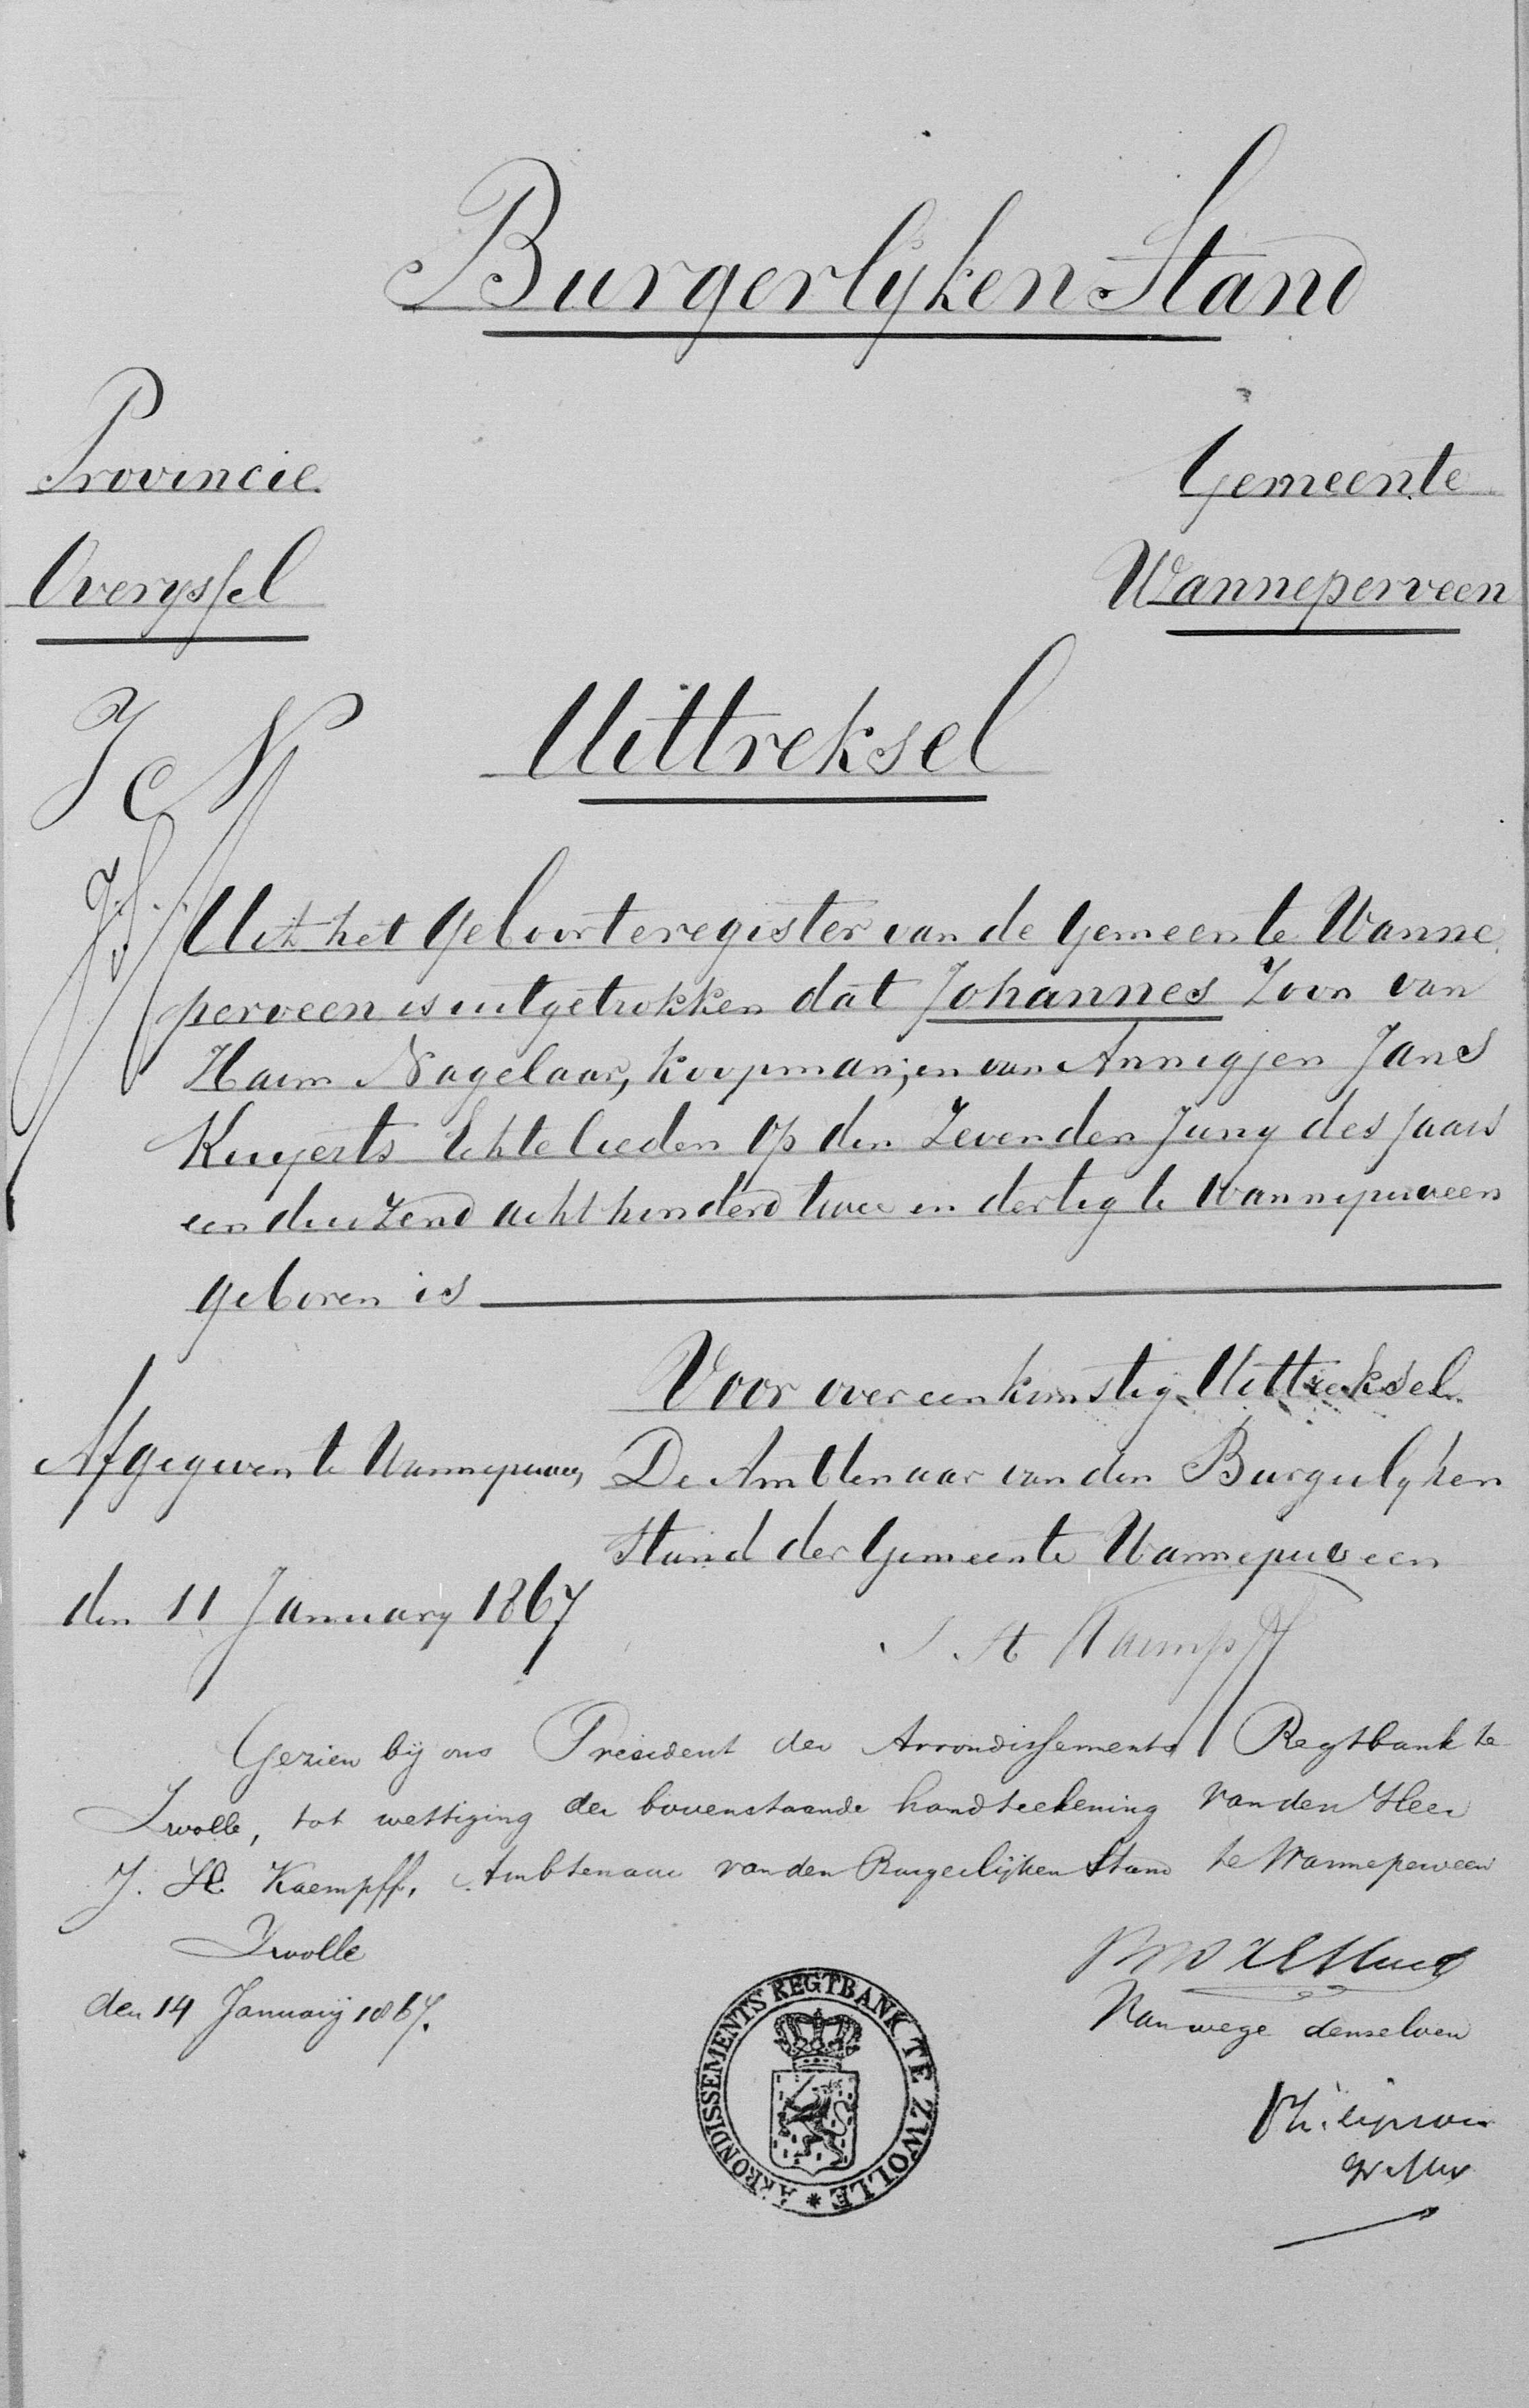 Burgerlijken Stand
Provincie
Overyssel
Gemeente
Wanneperveen
J C N
Uittreksel
Uit het Geboorteregister van de Gemeente Wanne
perveen is uitgetrokken dat Johannes Zoon van
Harm Nagelaar, koopman; en van Annigjen Jans
Kuyerts Echtelieden op den Zevenden Juny des jaars
een duizend acht honderd twee en dertig te Wanneperveen
geboren is
Voor overeenkomstig Uittreksel
Afgegeven te Wanneperveen
De Ambtenaar van den Burgerlyken
Stand der Gemeente Wanneperveen
den 11 January 1867
J. H Kaempff
Gezien bij ons President der Arrondissements Regtbank te
Zwolle, tot wettiging der bovenstaande handteekening van den Heer
J. H. Kaempff, Ambtenaar van den Burgerlijken Stand te Wanneperveen
Zwolle
den 14 Januarij 1867.
Van wege denselven
griffier
ARRONDISSEMENTS REGTBANK TE ZWOLLE *